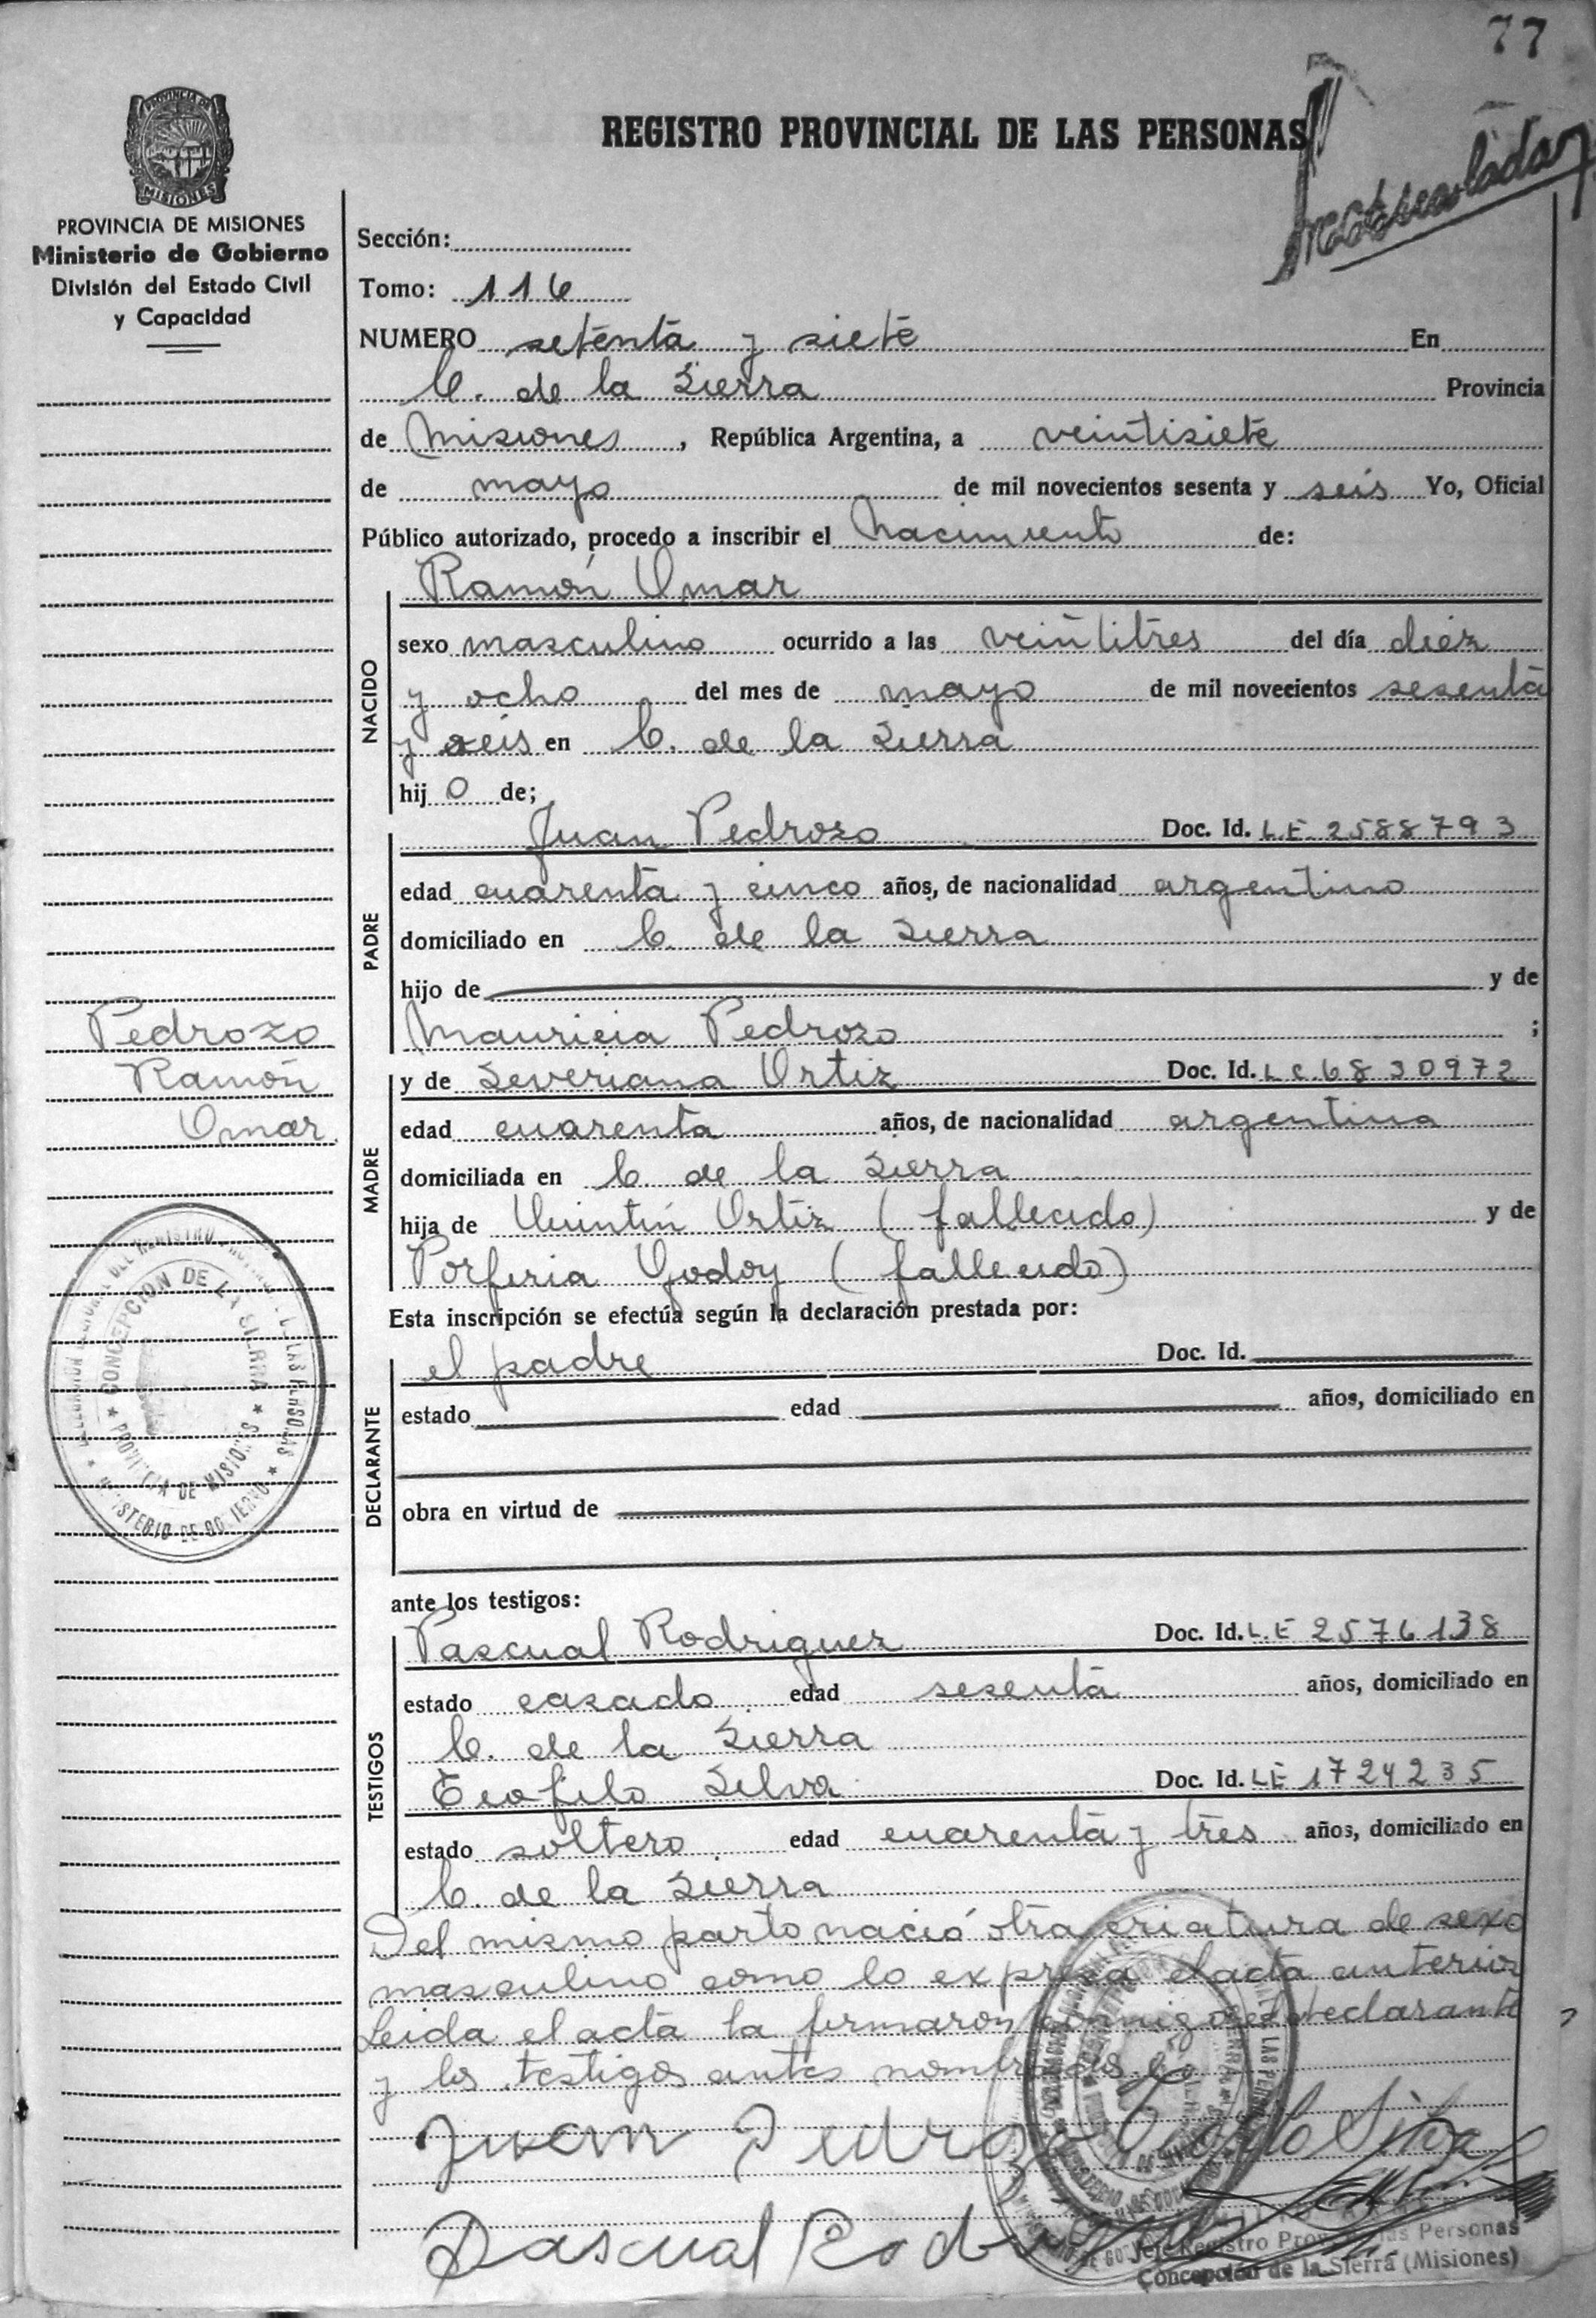 77
Matriculado
REGISTRO PROVINCIAL DE LAS PERSONAS
PROVINCIA DE
MISIONES
PROVINCIA DE MISIONES
Ministerio de Gobierno
División del Estado Civil
y Capacidad
Sección:
Tomo: 116
NUMERO setenta y siete En
C. de la Sierra Provincia
de Misiones, República Argentina, a veintisiete
de mayo de mil novecientos sesenta y seis Yo, Oficial
Público autorizado, procedo a inscribir el Nacimiento de:
NACIDO
Ramón Omar
sexo masculino ocurrido a las veintitres del día diez
y ocho del mes de mayo de mil novecientos sesenta
y seis en C. de la Sierra
hijo de;
PADRE
Juan Pedrozo Doc. Id. L.E. 2588793
edad cuarenta y cinco años, de nacionalidad argentino
domiciliado en C. de la Sierra
hijo de y de
Mauricia Pedrozo ;
Pedrozo
Ramón
Omar
MADRE
y de Severiana Ortiz Doc. Id. L C. 6830972
edad cuarenta años, de nacionalidad argentina
domiciliada en C. de la Sierra
hija de Quintin Ortiz (fallecido) y de
Porfiria Godoy (fallecido)
Esta inscripción se efectúa según la declaración prestada por:
DECLARANTE
el padre Doc. Id.
estado edad años, domiciliado en
obra en virtud de
CONCEPCION DE LA SIERRA
PROVINCIA DE MISIONES
MINISTERIO DE GOBIERNO
ante los testigos:
TESTIGOS
Pascual Rodriguez Doc. Id. L.E 2576138
estado casado edad sesenta años, domiciliado en
C. de la Sierra
Teofilo Silva Doc. Id. LE 1724235
estado soltero edad cuarenta y tres años, domiciliado en
C. de la Sierra
Del mismo parto nació otra criatura de sexo
masculino como lo expresa el acta anterior
Leida el acta la firmaron conmigo el declarante
y los testigos antes nombrados
Juan Pedrozo Teofilo Silva
Pascual Rodriguez
Jefe Registro Prov. las Personas
Concepción de la Sierra (Misiones)